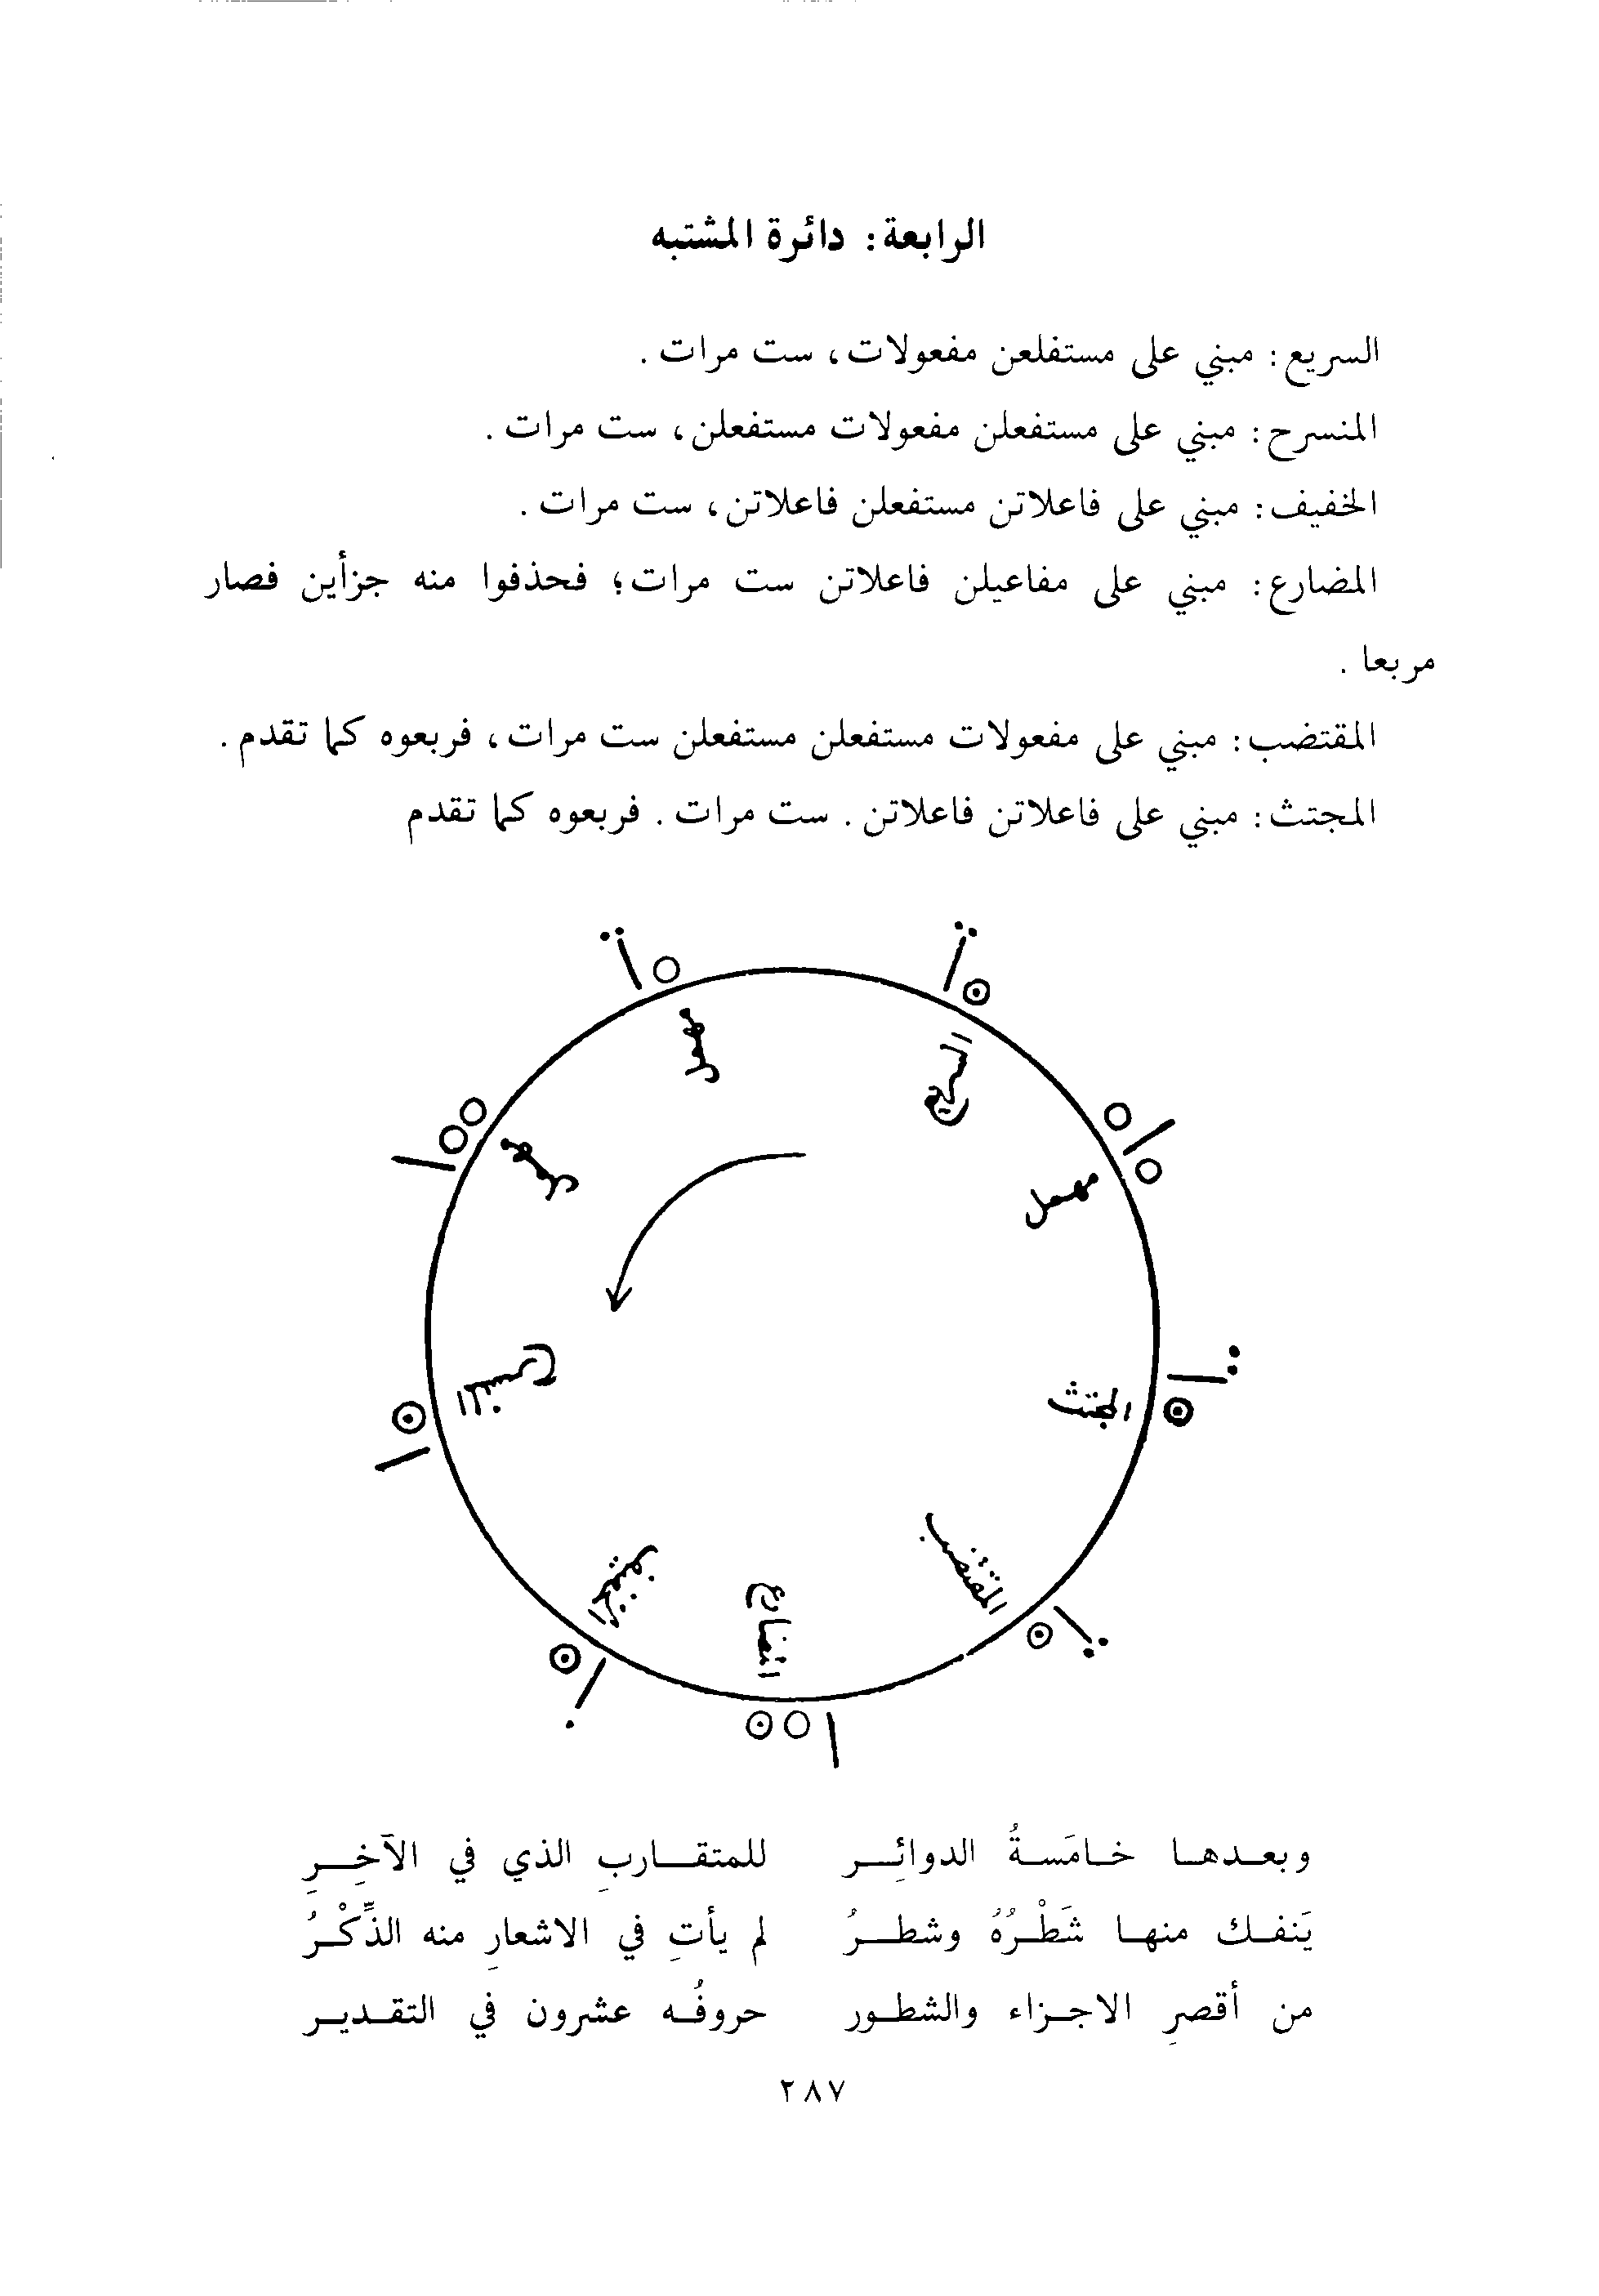 الرابعة: دائرة المشتبه
السريع: مبني على مستفلعن مفعولات، ست مرات.
المنسرح: مبني على مستفعلن مفعولات مستفعلن، ست مرات.
الخفيف: مبني على فاعلاتن مستفعلن فاعلاتن، ست مرات.
المضارع: مبني على مفاعيلن فاعلاتن ست مرات؛ فحذفوا منه جزأين فصار
مربعا.
المقتضب: مبني على مفعولات مستفعلن مستفعلن ست مرات، فربعوه كما تقدم.
المجتث: مبني على فاعلاتن فاعلاتن. ست مرات. فربعوه كما تقدم
السريع
مهمل
مهمل
المنسرح
الخفيف
المضارع
المقتضب
المجتث
مهمل
وبعدها خامَسةُ الدوائِر للمتقاربِ الذي في الآخِرِ
يَنفك منها شَطْرُهُ وشطرُ لم يأتِ في الاشعارِ منه الذِّكْرُ
من أقصرِ الاجزاء والشطور حروفُه عشرون في التقدير
٢٨٧